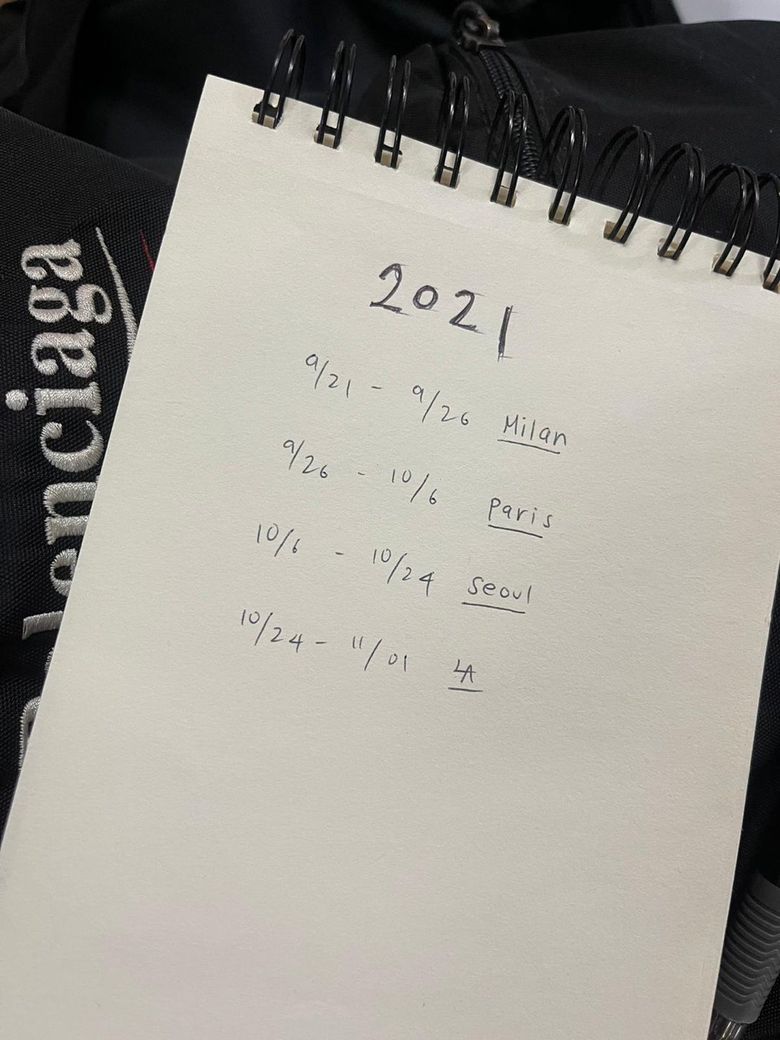 2021
9/21 - 9/26 Milan
9/26 - 10/6 Paris
10/6 - 10/24 Seoul
10/24 - 11/01 LA